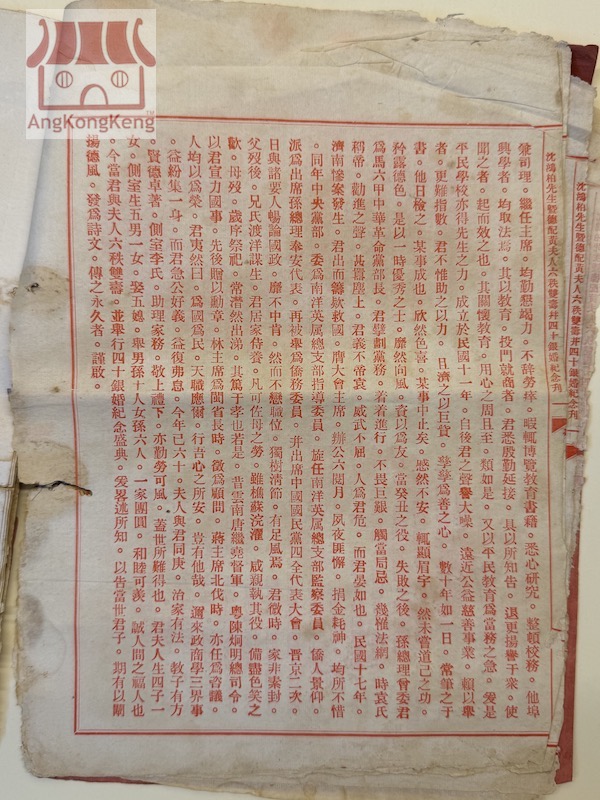 AngKongKeng™
沈鴻柏先生暨德配黃夫人六秩雙壽并四十銀婚紀念刊
沈鴻柏先生暨德配黃夫人六秩雙壽并四十銀婚紀念刊
兼司理。繼任主席。均勤懇竭力。不辭勞瘁。暇輒博覽教育書籍。悉心研究。整頓校務。他埠
興學者。均取法焉。其以教育。投門就商者。君悉殷勤延接。具以所知告。退更揚譽于衆。使
聞之者。起而效之也。其關懷教育。用心之周且至。類如是。又以平民教育爲當務之急。爰是
平民學校亦得先生之力。成立於民國十一年。自後君之聲譽大噪。遠近公益慈善事業。賴以舉
者。更難指數。君不惟助之以力。且濟之以巨貲。孳孳爲善之心。數十年如一日。常筆之于
書。他日檢之。某事成也。欣然色喜。某事中止矣。慼然不安。輒顯眉宇。然未嘗道己之功。
矜露德色。是以一時優秀之士。靡然向風。資以爲友。當癸丑之役。失敗之後。孫總理曾委君
爲馬六甲中華革命黨部長。君擘劃黨務。着着進行。不畏巨艱。觸當局忌。幾罹法網。時袁氏
稱帝。勸進之聲。甚囂塵上。君義不帝袁。威武不屈。人爲君危。而君晏如也。民國十七年。
濟南慘案發生。君出而籌欵救國。膺大會主席。辦公六閱月。夙夜匪懈。捐金耗神。均所不惜
。同年中央黨部。委爲南洋英属總支部指導委員。旋任南洋英属總支部監察委員。僑人景仰。
派爲出席孫總理奉安代表。再被舉爲僑務委員。并出席中國國民黨四全代表大會。晋京二次。
日與諸要人暢論國政。靡不中肯。然而不戀職位。獨樹清節。有足風焉。君微時。家非素封。
父歿後。兄氏渡洋謀生。君居家侍養。凡可佐母之勞。雖樵蘇浣濯。咸親執其役。備盡色笑之
歡。母歿。歲序祭祀。常潸然出涕。其篤于孝也若是。昔雲南唐繼堯督軍。粵陳烱明總司令。
以君宣力國事。先後贈以勳章。林主席爲閩省長時。徵爲顧問。蔣主席北伐時。亦任爲咨議。
人均以爲榮。君夷然曰。爲國爲民。天職應爾。行吾心之所安。豈有他哉。邇來政商學三界事
。益紛集一身。而君急公好義。益復弗怠。今年已六十。夫人與君同庚。治家有法。教子有方
。賢德卓著。側室李氏。助理家務。敬上禮下。亦勤勞可風。蓋世所難得也。君夫人生四子一
女。側室生五男一女。娶五媳。舉男孫十人女孫六人。一家團圓。和睦可羨。誠人間之福人也
。今當君與夫人六秩雙壽。並舉行四十銀婚紀念盛典。爰畧述所知。以告當世君子。期有以闡
揚德風。發爲詩文。傳之永久者。謹啟。